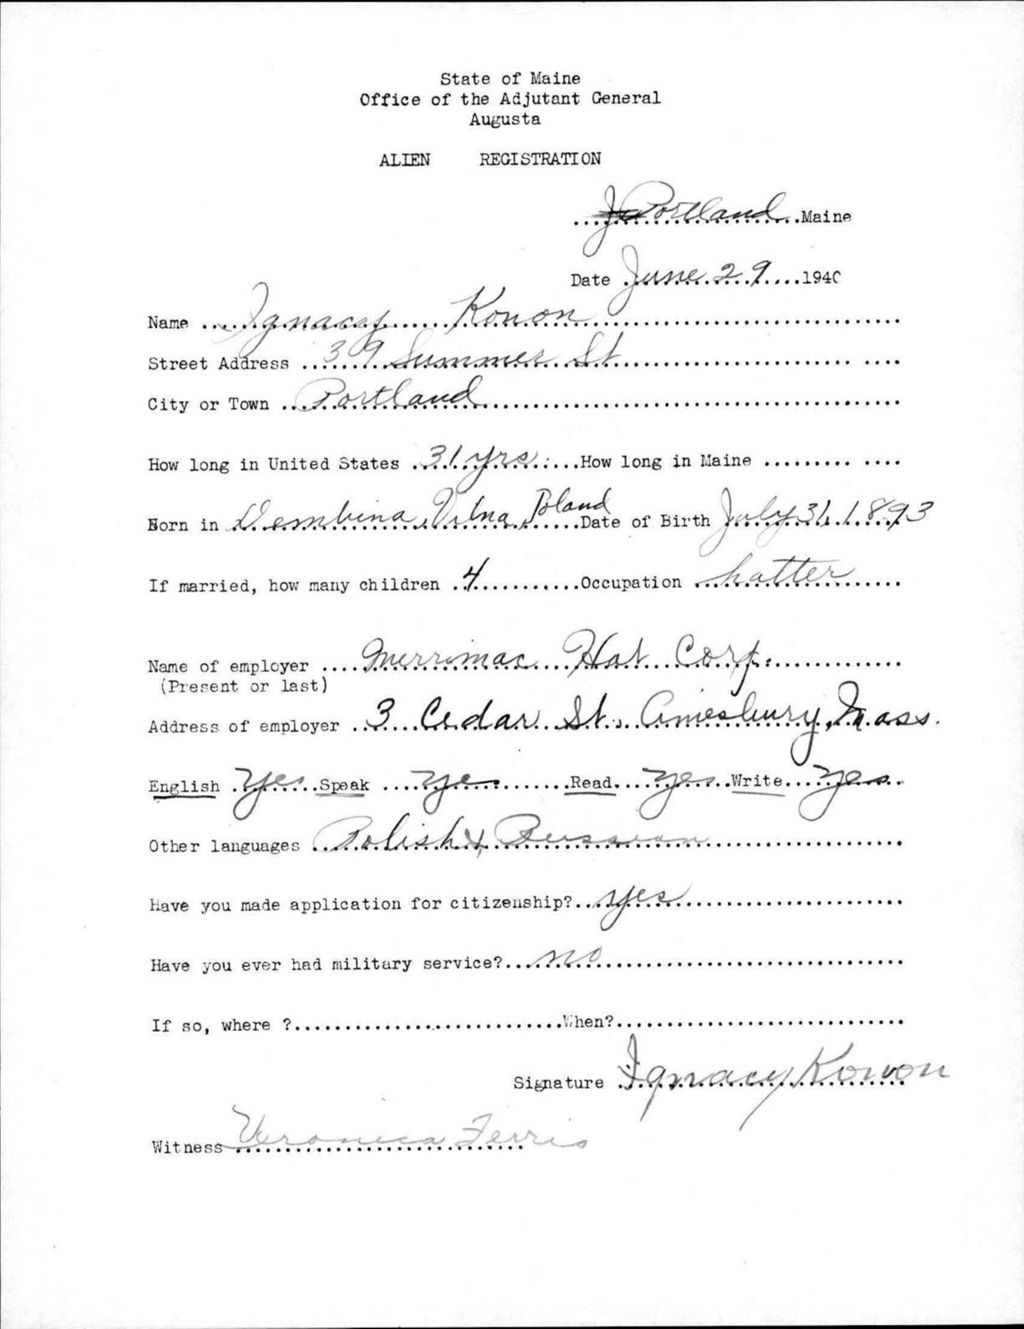 State of Maine
Office of the Adjutant General
Augusta
ALIEN REGISTRATION
Portland Maine
Date June 29 1940
Name Ignacy Konon
Street Address 39 Summer St
City or Town Portland
How long in United States 31 yrs. How long in Maine
Born in Dembina, Vilna, Poland Date of Birth July 31, 1893
If married, how many children 4 Occupation hatter
Name of employer Merrimac Hat Corp.
(Present or last)
Address of employer 3 Cedar St. Amesbury, Mass.
English Yes Speak Yes Read yes Write Yes
Other languages Polish & Russian
Have you made application for citizenship? yes
Have you ever had military service? no
If so, where ? When?
Signature Ignacy Konon
Witness Veronica Ferris